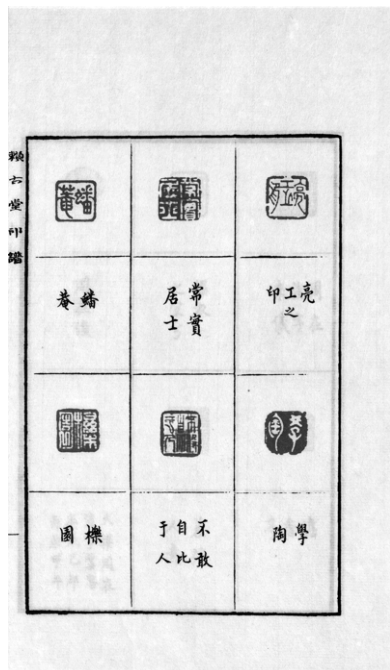 賴古堂印譜
亮工之印
常實
居士
蟠菴
學陶
不敢
自比
于人
櫟園
蟠菴
學陶